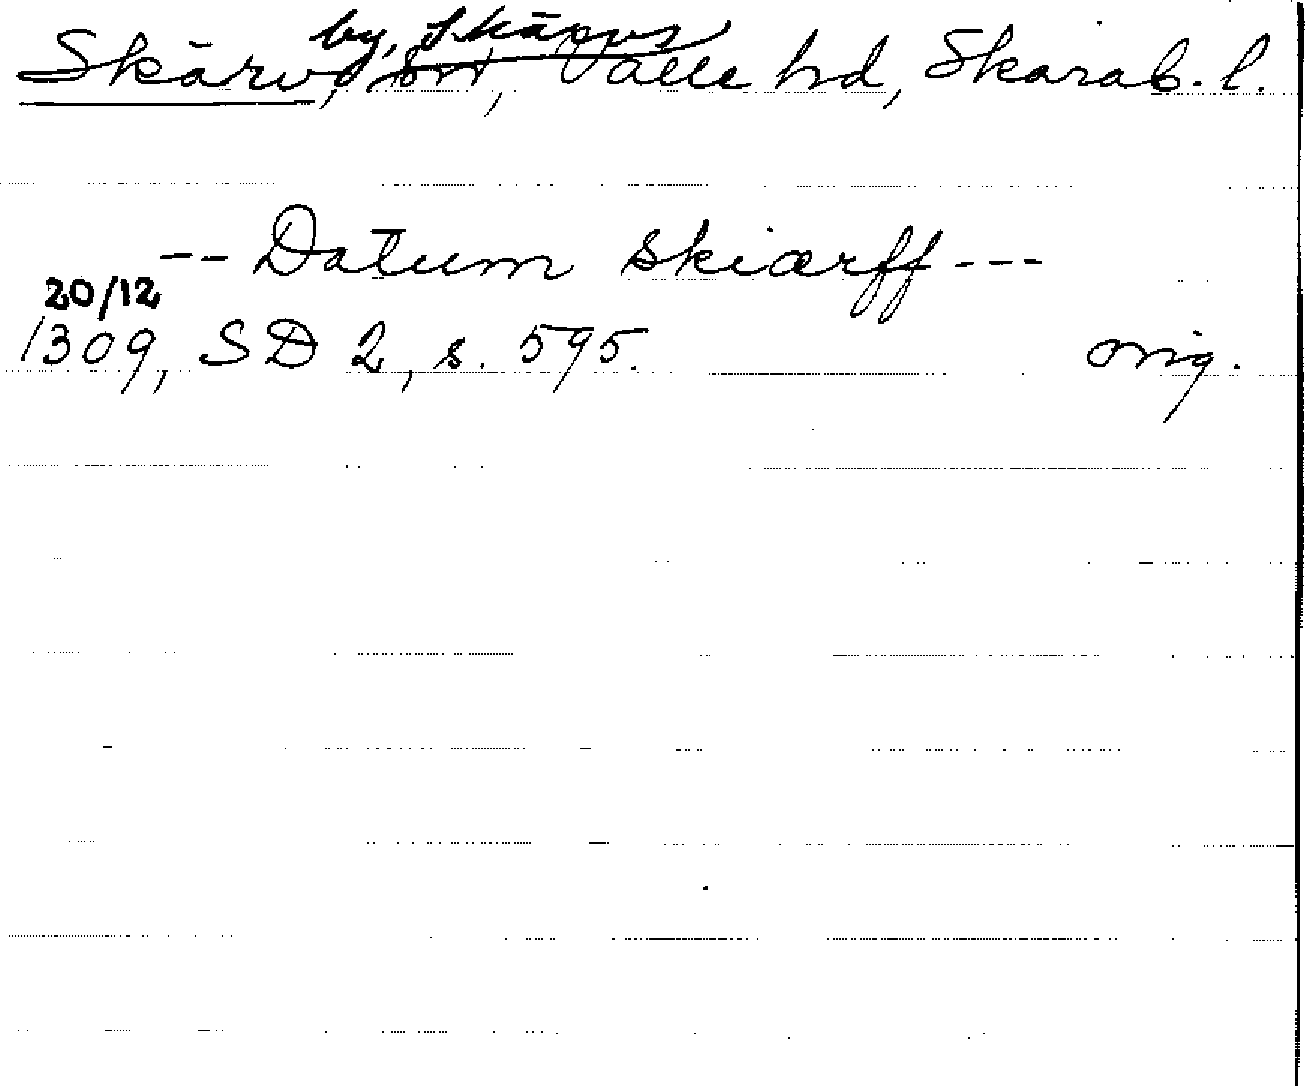 by, Skärvs
Skärv, ort, Valle hd, Skarab. l.
-- Datum skiærff ---
20/12
1309, SD 2, s. 595. orig.